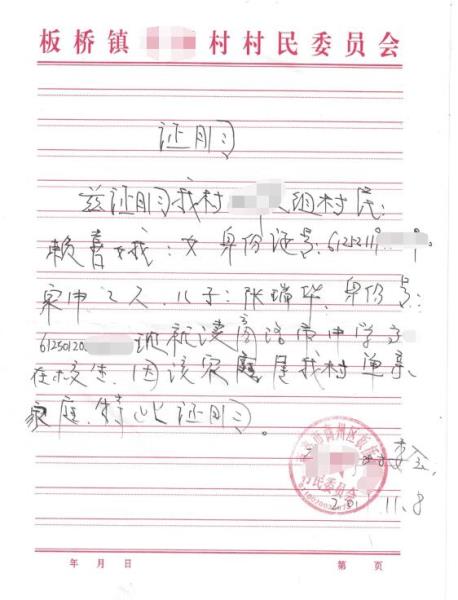 板桥镇 村村民委员会
证明
兹证明我村 组村民:
赖春娥:女 身份证号:6125211 9。
家中2人.儿子:张瑞华.身份号:
61250120 现就读商洛市中学立
在校生.因该家庭属我村单亲
家庭.特此证明。
委会,
村民委员会
11.8
年 月 日 第 页